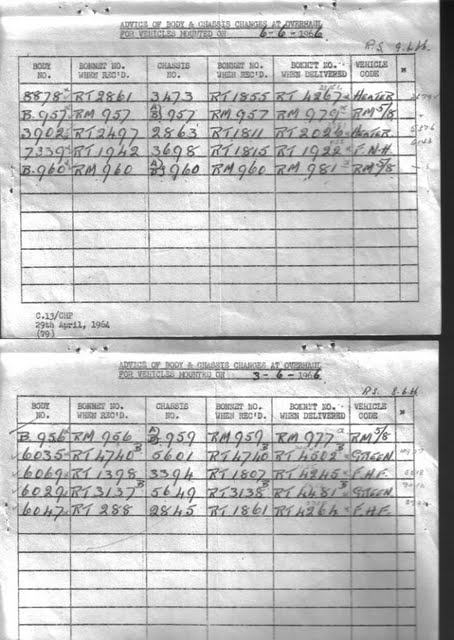 ADVICE OF BODY & CHASSIS CHANGES AT OVERHAUL
FOR VEHICLES MOUNTED ON 6-6-1966
P.S. 9.6.66
BODY NO. BONNET NO. WHEN REC'D. CHASSIS NO. BONNET NO. WHEN REC'D. BONNET NO. WHEN DELIVERED VEHICLE CODE
8878 RT 2861 3473 RT 1855 RT 4267 HEATER
B.957 RM 957 957 RM 957 RM 979 RM 5/8
3902 RT 2497 2863 RT 1811 RT 2026 HEATER
7339 RT 1942 3698 RT 1815 RT 1922 F.N.H.
B.960 RM 960 960 RM 960 RM 981 RM 5/8
C.13/CHP
29th April, 1964
(79)
ADVICE OF BODY & CHASSIS CHANGES AT OVERHAUL
FOR VEHICLES MOUNTED ON 3-6-1966
P.S. 8.6.66
BODY NO. BONNET NO. WHEN REC'D. CHASSIS NO. BONNET NO. WHEN REC'D. BONNET NO. WHEN DELIVERED VEHICLE CODE
B.956 RM 956 959 RM 959 RM 977 RM 5/8
6035 RT 4740 B 5601 RT 4740 B RT 4502 B GREEN
6069 RT 1398 3394 RT 1807 RT 4245 F.H.F.
6029 RT 3137 B 5649 RT 3138 B RT 4481 B GREEN
6047 RT 288 2845 RT 1861 RT 4264 F.H.F.